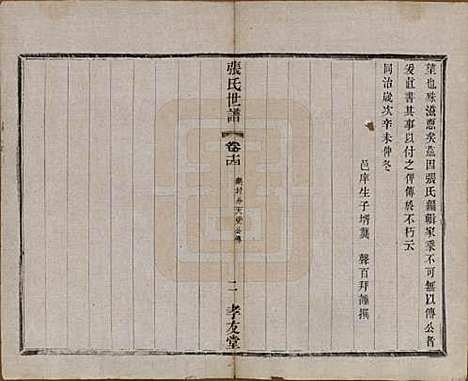 望也殊滋慝矣茲因張氏編輯家乘不可無以傳公者
爰直書其事以付之俾傳於不朽云
同治歲次辛未仲冬
邑庠生子壻龔聲百拜謹撰
張氏世譜
卷十四
二
孝友堂